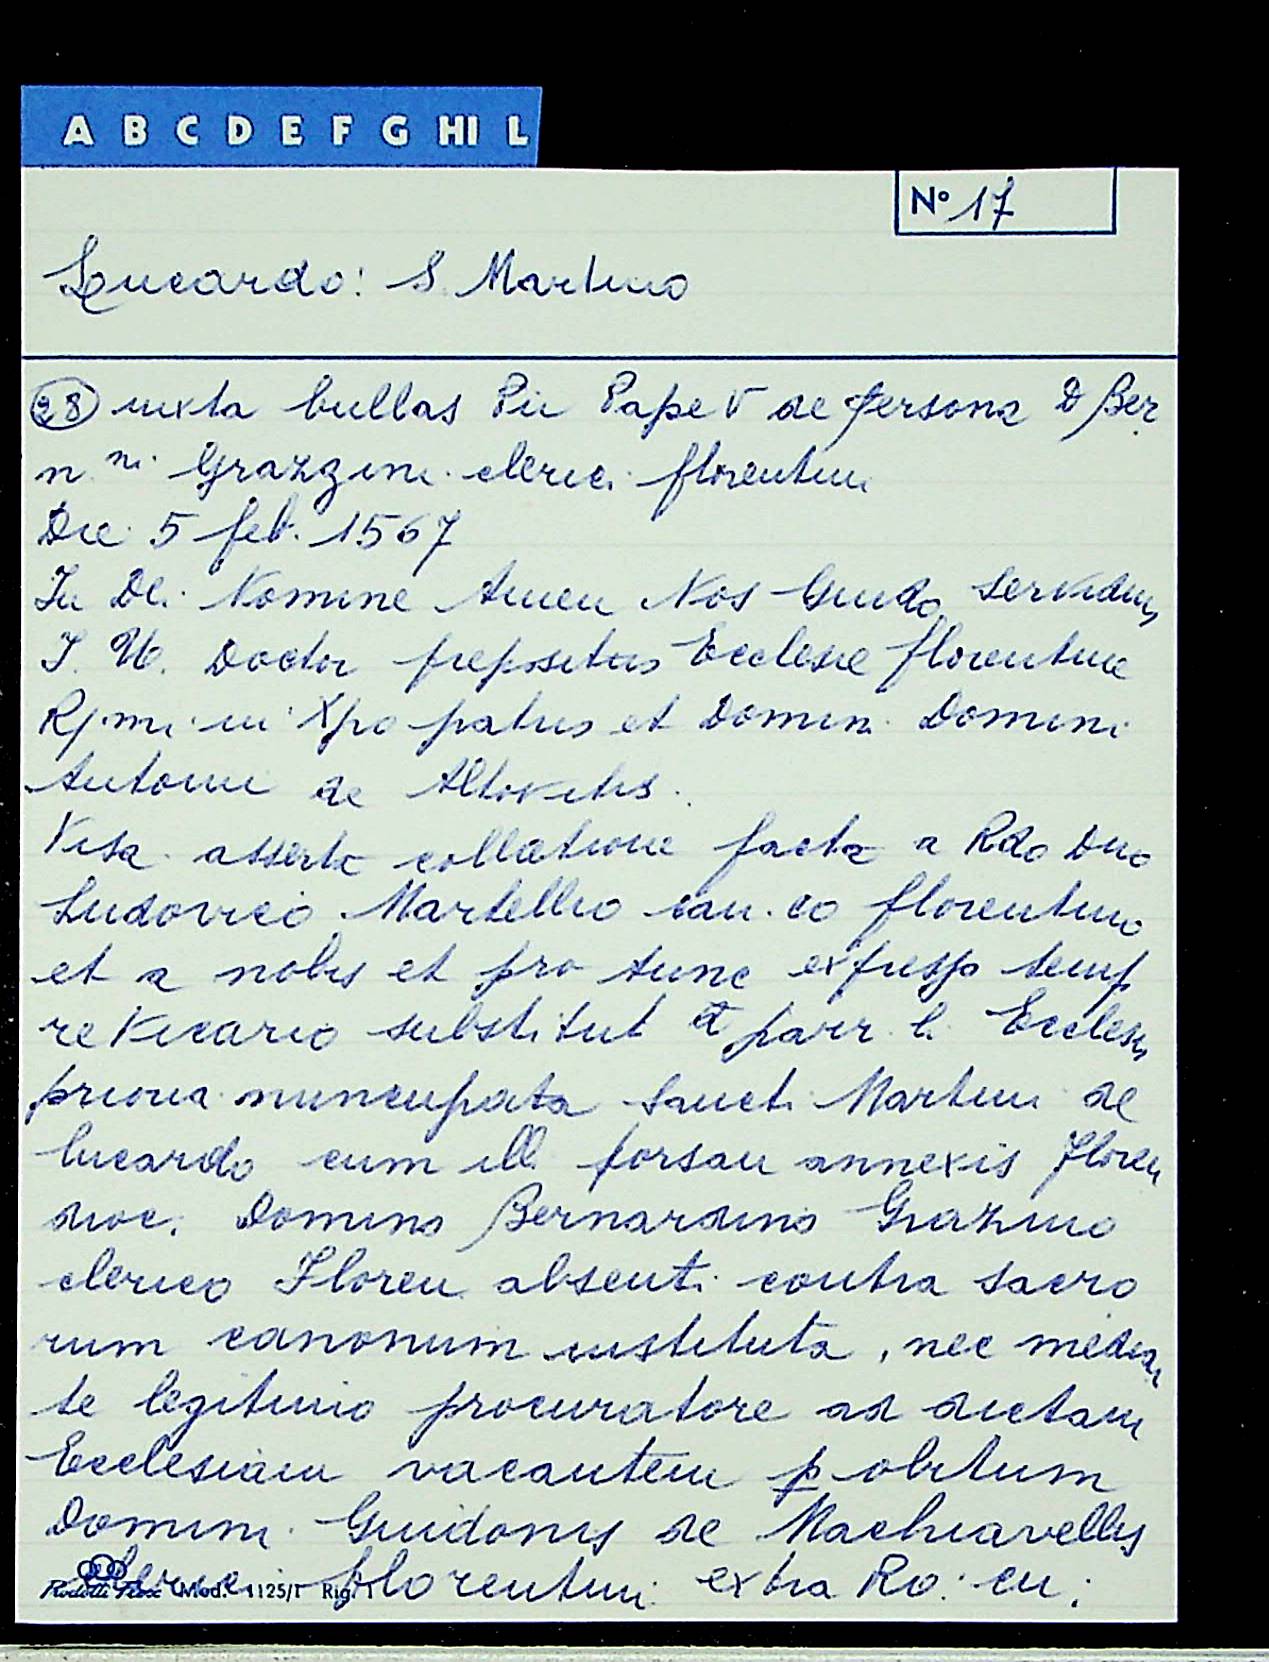 A B C D E F G HI L
N° 17
Lucardo: S. Martino
28 iuxta bullas Pii Pape V de persona D Ber
n ni Grazzini clerici florentini
Die 5 feb. 1567
In Dei Nomine Amen Nos Guido Servidius
J. U. Doctor prepositus Ecclesie florentine
R.mi in Xpo patris et Domini Domini
Antonii de Altovitis.
Visa asserta collatione facta a Rdo Dno
Ludovico Martellio can.co florentino
et a nobis et pro tunc expresso temp
re Vicario substitut et parr. l. Ecclesie
prioria nuncupata Sancti Martini de
lucardo cum ill forsan annexis Floren
dioc. Domino Bernardino Grazino
clerico Floren absenti contra sacro
rum canonum instituta, nec median
te legitimo procuratore ad dictam
Ecclesiam vacantem p obitum
Domini Guidonis de Machiavellis
clerici florentini extra Ro. cu:
Mod. 1125/1 Rig. 1